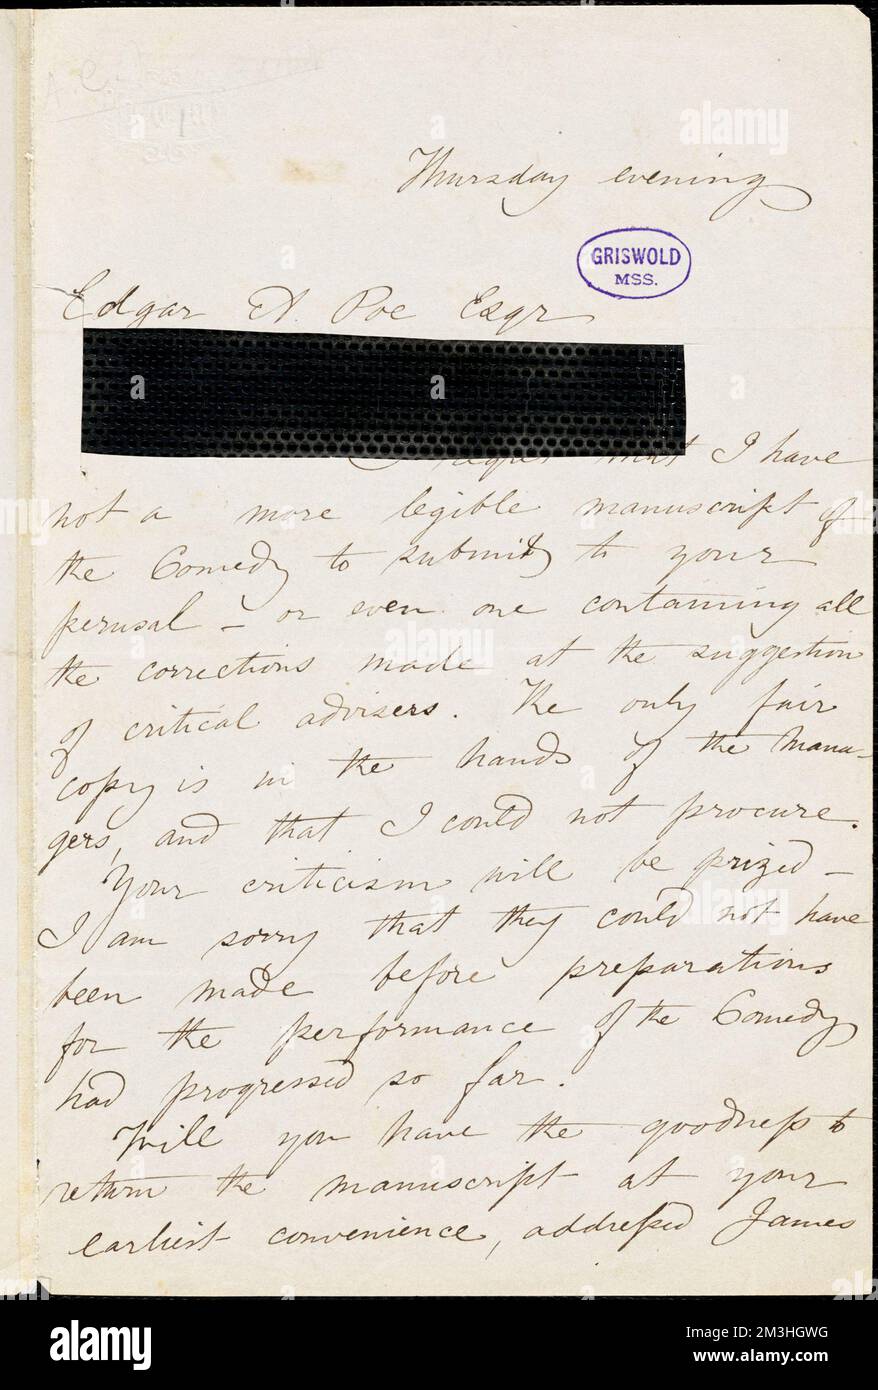 Thursday evening
GRISWOLD
MSS.
Edgar A. Poe Esqr
I regret that I have
not a more legible manuscript of
the Comedy to submit to your
perusal – or even one containing all
the corrections made at the suggestion
of critical advisers. The only fair
copy is in the hands of the Mana-
gers, and that I could not procure.
Your criticism will be prized –
I am sorry that they could not have
been made before preparations
for the performance of the Comedy
had progressed so far.
Will you have the goodness to
return the manuscript at your
earliest convenience, addressed James
alamy
Image ID: 2M3HGWG
www.alamy.com